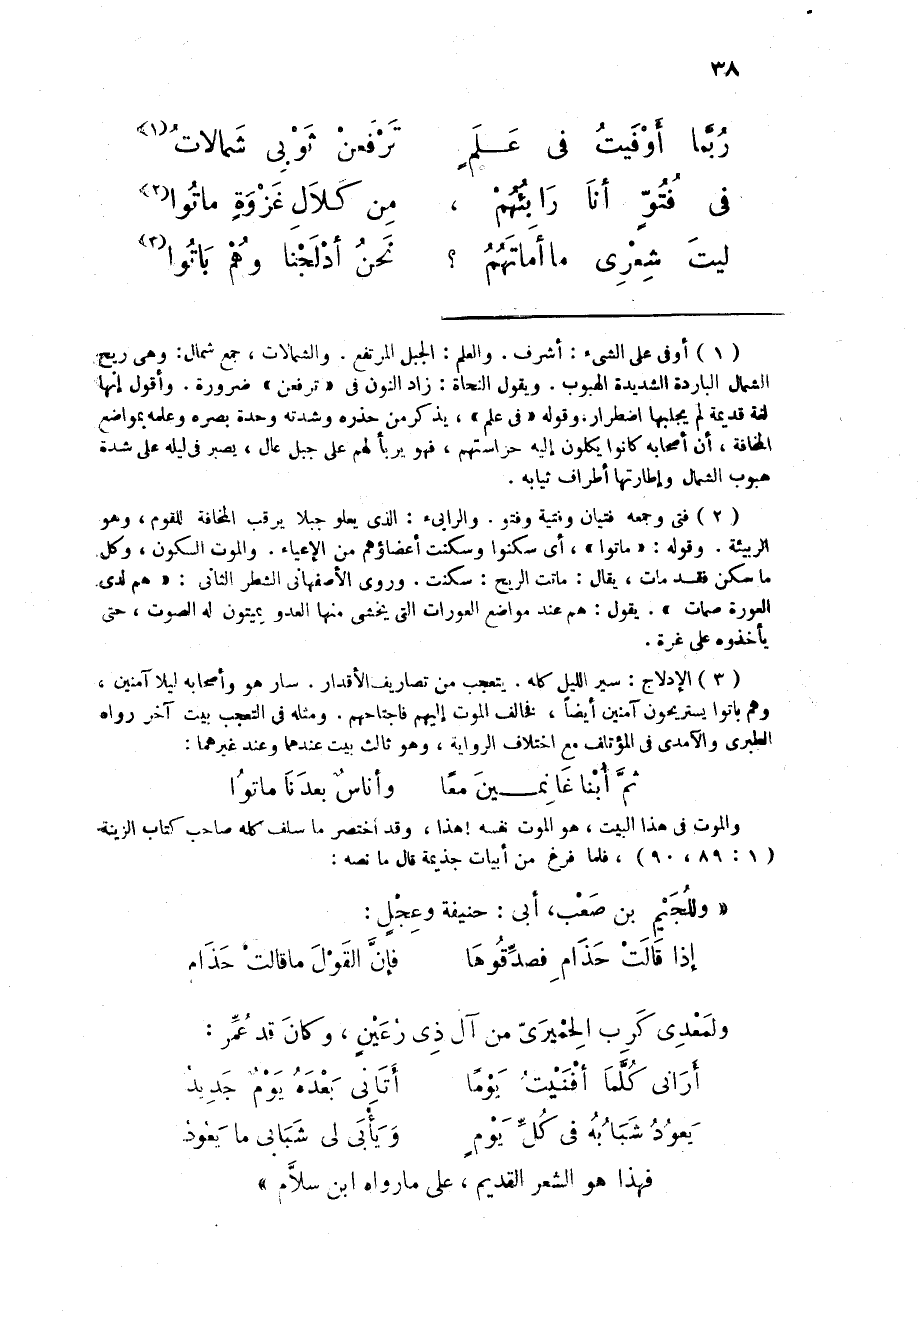 ٣٨
رُبَّما أَوْفَيتُ فى عَــلَمٍ تَرْفَعنْ ثَوْبِى شَمالاتُ(١)
فى فُتُوٍّ أنَا رَابِئُهُمْ ، مِن كَلاَلِ غَزْوَةٍ ماتُوا(٢)
ليتَ شِعْرِى ما أماتَهُمُ ؟ نَحنُ أدْلَجْنا وهُمْ بَاتُوا(٣)
( ١ ) أوفى على الشىء : أشرف . والعلم : الجبل المرتفع . والشمالات ، جمع شمال : وهى ريح
الشمال الباردة الشديدة الهبوب . ويقول النحاة : زاد النون فى « ترفعن » ضرورة . وأقول إنها
لغة قديمة لم يجلبها اضطرار . وقوله « فى علم » ، يذكر من حذره وشدته وحدة بصره وعلمه بمواضع
المخافة ، أن أصحابه كانوا يكلون إليه حراستهم ، فهو يربأ لهم على جبل عال ، يصبر فى ليله على شدة
هبوب الشمال وإطارتها أطراف ثيابه .
( ٢ ) فتى وجمعه فتيان وفتية وفتو . والرابىء : الذى يعلو جبلا يرقب المخافة للقوم ، وهو
الربيئة . وقوله : « ماتوا » ، أى سكنوا وسكنت أعضاؤهم من الإعياء . والموت السكون ، وكل
ما سكن فقــد مات ، يقال : ماتت الريح : سكنت . وروى الأصفهانى الشطر الثانى : « هم لدى
العورة صمات » . يقول : هم عند مواضع العورات التى يخشى منها العدو يميتون له الصوت ، حتى
يأخذوه على غرة .
( ٣ ) الإدلاج : سير الليل كله . يتعجب من تصاريف الأقدار . سار هو وأصحابه ليلا آمنين ،
وهم باتوا يستريحون آمنين أيضاً ، فخالف الموت إليهم فاجتاحهم . ومثله فى التعجب بيت آخر رواه
الطبرى والآمدى فى المؤتلف مع اختلاف الرواية ، وهو ثالث بيت عندهما وعند غيرهما :
ثمَّ أُبْنا غَانِمـــينَ مَعًا وأناسٌ بعدَنَا ماتوُا
والموت فى هذا البيت ، هو الموت نفسه ! هذا ، وقد اختصر ما سلف كله صاحب كتاب الزينة
( ١ : ٨٩ ، ٩٠ ) ، فلما فرغ من أبيات جذيمة قال ما نصه :
« وللُجَيْمِ بن صَعْب، أبى : حنيفة وعِجْلٍ :
إذا قَالَتْ حَذَامِ فصدِّقُوهَا فإنَّ القَوْلَ ماقالتْ حَذَامِ
ولمَعْدِى كَرِب الحِمْيرَىّ من آل ذِى رُعَيْنٍ ، وكانَ قد عُمِّر :
أَرَانى كُلَّمَا أفْنَيْتُ يَوْمًا أتَانِى بَعْدَهُ يَوْمٌ جَدِيدُ
يَعودُ شَبَابُهُ فى كُلِّ يَوْمٍ وَيَأْبَى لى شَبَابى ما يَعُودُ
فهذا هو الشعر القديم ، على مارواه ابن سلاَّم »